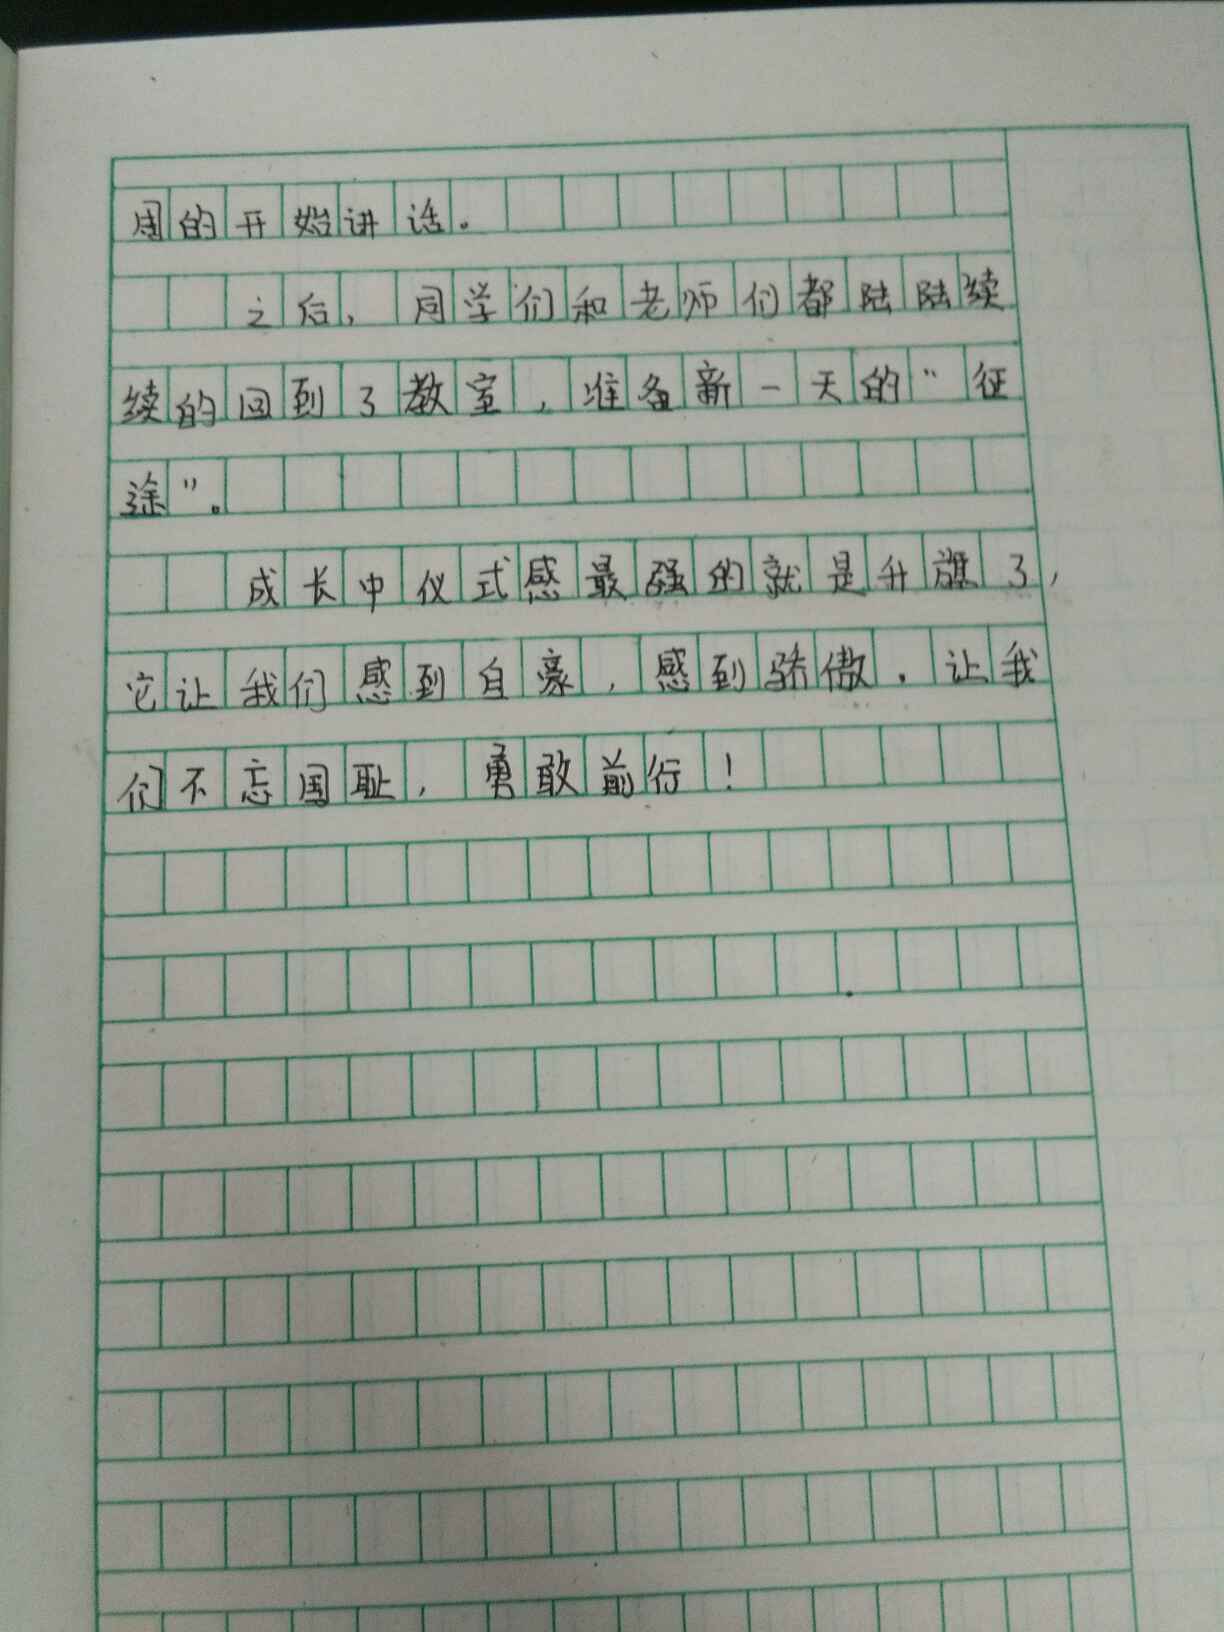 周的开始讲话。
之后，同学们和老师们都陆陆续
续的回到了教室，准备新一天的“征
途”。
成长中仪式感最强的就是升旗了，
它让我们感到自豪，感到骄傲，让我
们不忘国耻，勇敢前行！